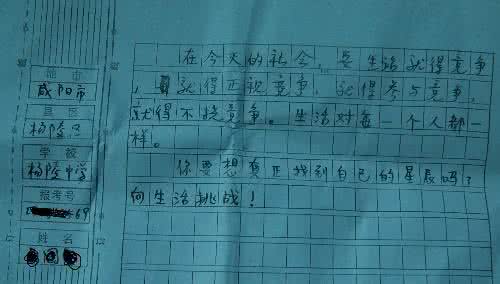 城市
咸阳市
县区
杨陵区
学校
杨陵中学
报考号
69
姓名
在今天的社会,是生活就得竞争
,就得正视竞争,就得参与竞争,
就得不挠竞争。生活对每一个人都一
样。
你要想真正找到自己的星辰吗?
向生活挑战!